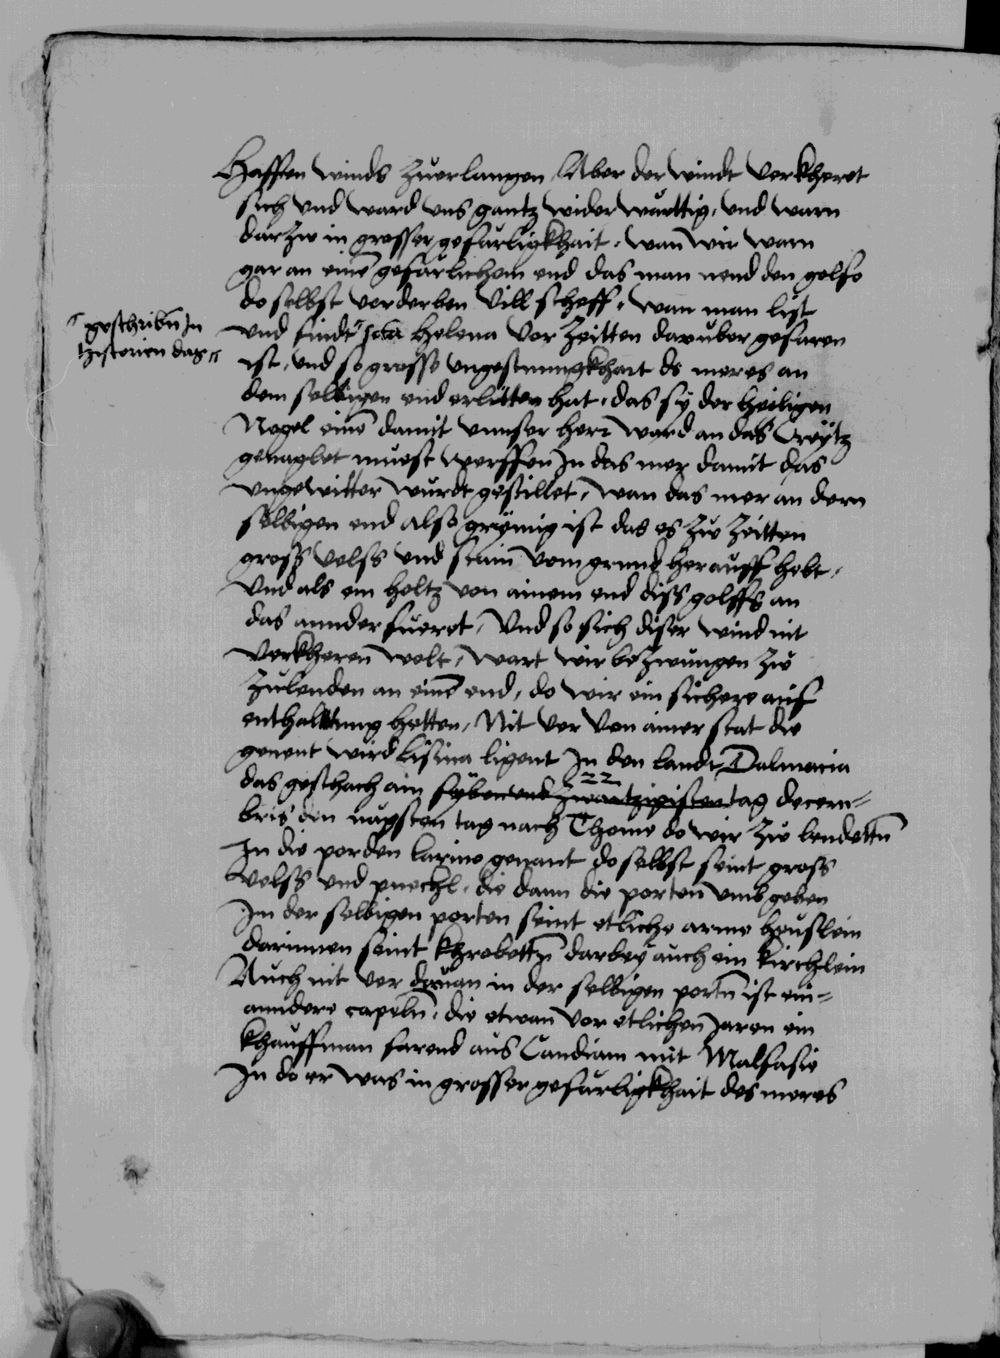 Haffen winds zuerlangen Aber der windt verkheret
sich vnd ward vns gantz widerwurttig, vnd warn
darzw in grosser gefarligkhait, wan wir warn
gar an einē gefarlichem end das man nend den golfo
do selbst verderben vill scheff, wan man list
geschribn̄ In
historien das
vnd findt sc̄a Helena vor zeitten daruber gefaren
ist, vnd so grosse vngestuomigkhait ds meres an
dem selbigen end erlitten hat, das sy der heiligen
Negel einē damit vnnser herr ward an das Creytz
genaglet muest werffen In das mer damit das
vngewitter wurdt gestillet, wan das mer an dem
selbigen end also grymig ist das es zw zeitten
gross velss vnd stain vom grund herauff hebt,
vnd als ein holtz von ainem end diss golffs an
das annder fueret, vnd so sich diser wind nit
verkheren wolt, wart wir bezwungen zw
zulenden an einē end, do wir ein sichere auf
enthalttung hetten, Nit ver von ainer stat die
genent wird Lisina ligent In den landt Dalmacia
22
das geschach ain syben vnd zwantzigisten tag decem=
bris den nagsten tag nach Thome do wir zw lendettn̄
In die porden larino genant do selbst seint gross
velss vnd puechl, die dann die porten vmb geben
In der selbigen porten seint etliche arme heuslein
darinnen seint khrobettn̄ darbey auch ein kirchlein
Auch nit ver dauan in der selbigen portn̄ ist ein=
anndere capeln̄, die etwan vor etlichen Jaren ein
khauffman farend aus Candiam mit Malfasie
In do er was in grosser gefarligkhait des meres